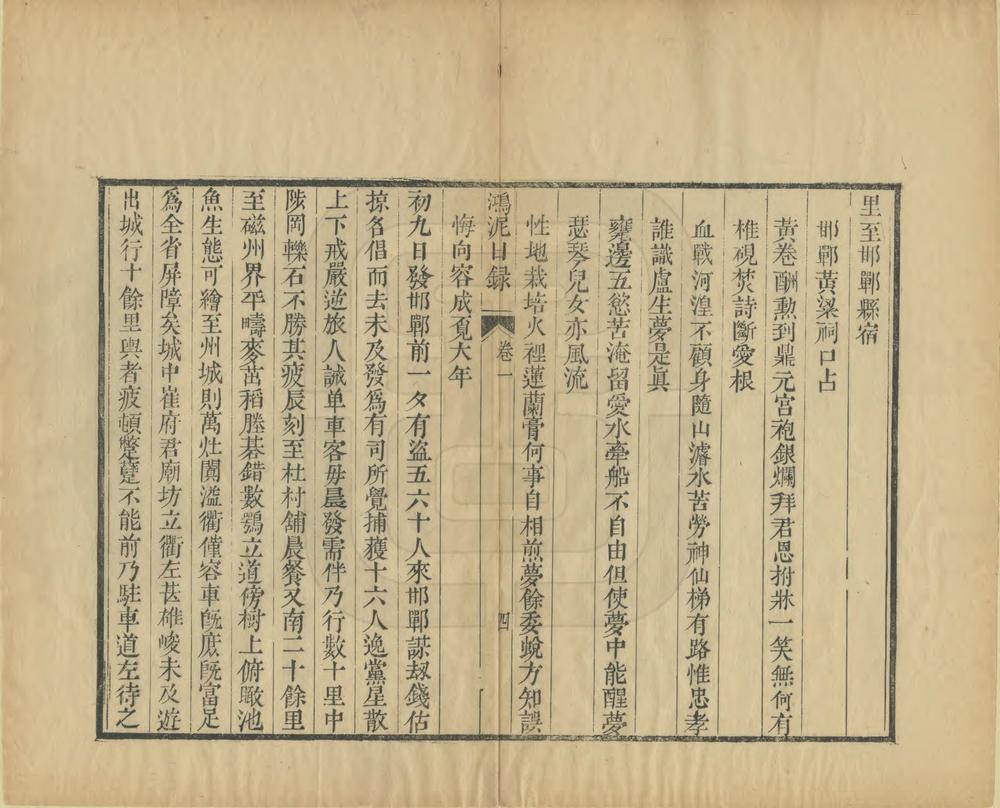 里至邯鄲縣宿
邯鄲黃粱祠口占
黃卷酬勲到鼎元宫袍銀爛拜君恩拊牀一笑無何有
椎硯焚詩斷愛根
血戰河湟不顧身隨山濬水苦勞神仙梯有路惟忠孝
誰識盧生夢是眞
甕邊五慾苦淹留愛水牽船不自由但使夢中能醒夢
瑟琴兒女亦風流
性地栽培火裡蓮蘭膏何事自相煎夢餘委蛻方知誤
鴻泥日録 卷一 四
悔向容成覓大年
初九日發邯鄲前一夕有盗五六十人來邯鄲謀刼錢估
掠名倡而去未及發爲有司所覺捕獲十六人逸黨星散
上下戒嚴逆旅人誡单車客毋晨發需伴乃行數十里中
陟岡轢石不勝其疲辰刻至杜村舖晨餐又南二十餘里
至磁州界平疇麥苗稻塍碁錯數鶚立道傍樹上俯瞰池
魚生態可繪至州城則萬灶闐溢衢僅容車旣庶旣富足
爲全省屏障矣城中崔府君廟坊立衢左甚雄峻未及遊
出城行十餘里輿者疲頓蹩躠不能前乃駐車道左待之